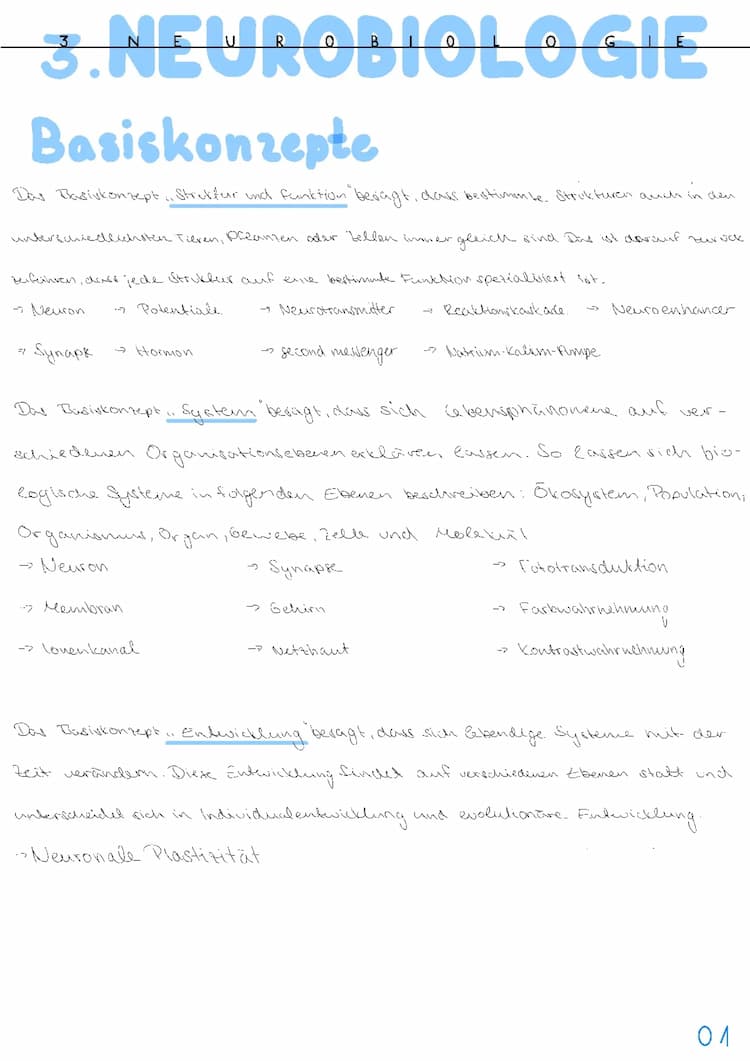 3 NEUROBIOLOGIE
3. NEUROBIOLOGIE
Basiskonzepte
Das Basiskonzept „Struktur und Funktion" besagt, dass bestimmte Strukturen auch in den
unterschiedlichsten Tieren, Pflanzen oder Zellen immer gleich sind Das ist darauf zurück
zuführen, dass jede Struktur auf eine bestimmte Funktion spezialisiert ist.
→ Neuron → Potentiale → Neurotransmitter → Reaktionskaskade → Neuroenhancer
→ Synapse → Hormon → second messenger → Natrium-Kalium-Pumpe
Das Basiskonzept „System" besagt, dass sich Lebensphänomene auf ver-
schiedenen Organisationsebenen erklären lassen. So lassen sich bio-
logische Systeme in folgenden Ebenen beschreiben: Ökosystem, Population,
Organismus, Organ, Gewebe, Zelle und Molekül
→ Neuron → Synapse → Fototransduktion
→ Membran → Gehirn → Farbwahrnehmung
→ Ionenkanal → Netzhaut → Kontrastwahrnehmung
Das Basiskonzept „Entwicklung" besagt, dass sich lebendige Systeme mit der
Zeit verändern. Diese Entwicklung findet auf verschiedenen Ebenen statt und
unterscheidet sich in Individualentwicklung und evolutionäre Entwicklung.
→ Neuronale Plastizität
01